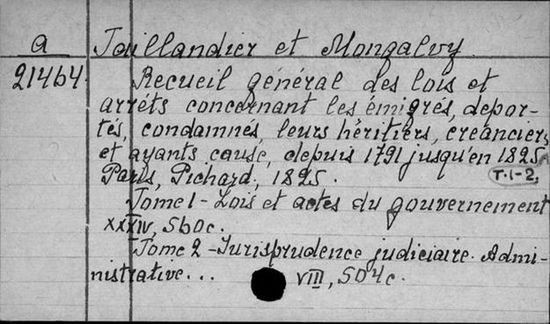 a Taillandier et Mongalvy
21464. Recueil général des lois et
arrêts concernant les émigrés, depor-
tés, condamnés, leurs héritiers, creanciers
et ayants cause, depuis 1791 jusqu'en 1825.
Paris, Pichard, 1825. T. 1-2,
Tome 1 - Lois et actes du gouvernement
XXXIV, 560c.
Tome 2 - Jurisprudence judiciaire. Admi-
nistrative... VIII, 504c.